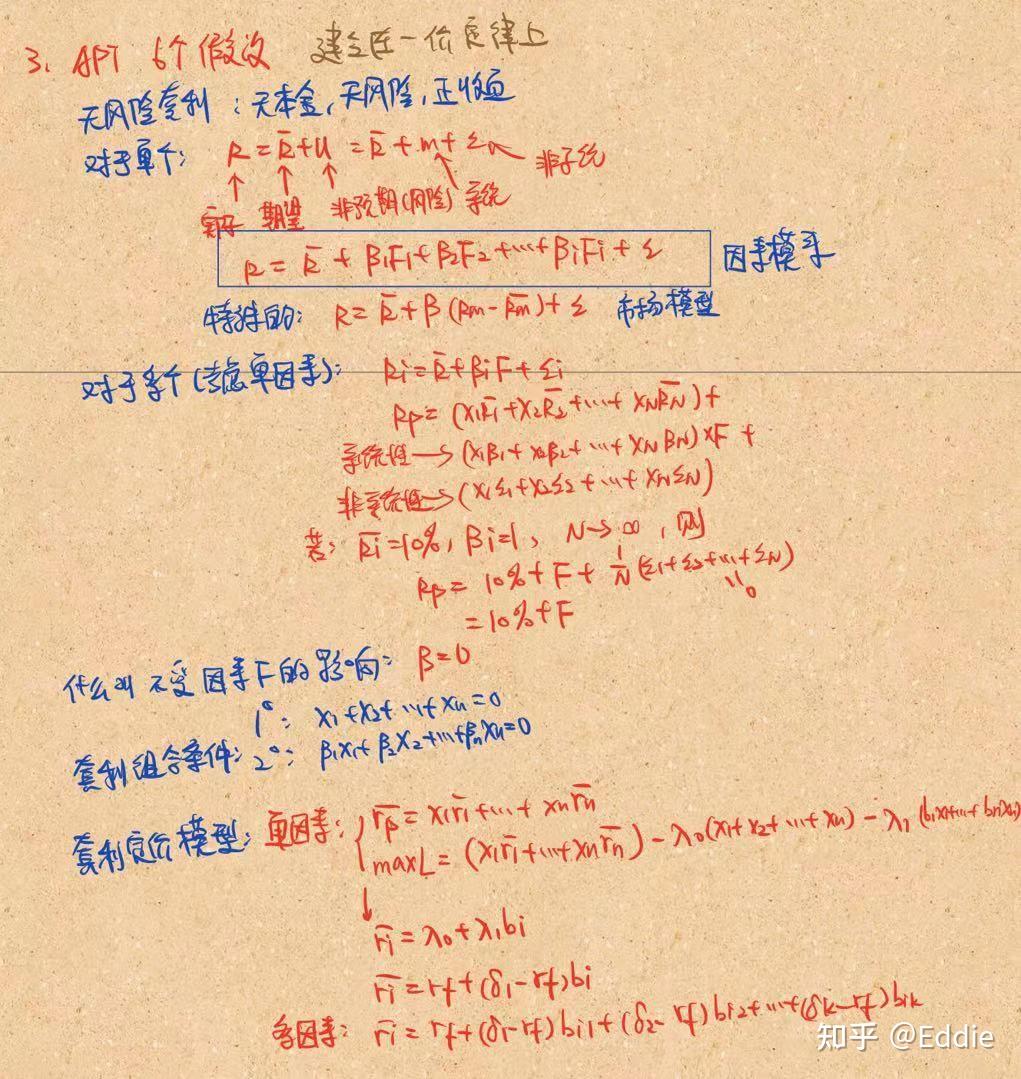 3. APT 6个假设 建立在一价定律上
无风险套利：无本金，无风险，正收益
对于单个： R = R̄+U = R̄ + m + ε ← 非系统
实际 期望 非预期(风险) 系统
R = R̄ + β1F1 + β2F2 + ... + βiFi + ε 因素模型
特殊的： R = R̄ + β (Rm - R̄m) + ε 市场模型
对于多个 (考虑单因素)： Ri = R̄ + βiF + εi
Rp = (x1R̄1 + x2R̄2 + ... + xNR̄N) +
系统性 → (x1β1 + x2β2 + ... + xNβN) × F +
非系统性 → (x1ε1 + x2ε2 + ... + xNεN)
若： R̄i = 10%, βi=1, N→∞, 则
Rp = 10% + F + 1/N (ε1 + ε2 + ... + εN)
"0
= 10% + F
什么叫不受因素F的影响： β=0
1°： x1 + x2 + ... + xn = 0
套利组合条件： 2°： β1x1 + β2x2 + ... + βnxn = 0
套利定价模型： 单因素： { r̄p = x1r̄1 + ... + xnr̄n
maxL = (x1r̄1 + ... + xnr̄n) - λ0(x1 + x2 + ... + xn) - λ1 (b1x1 + ... + bnxn)
↓
r̄i = λ0 + λ1bi
r̄i = rf + (δ1 - rf)bi
多因素： r̄i = rf + (δ1 - rf) bi1 + (δ2 - rf) bi2 + ... + (δk - rf) bik
知乎 @Eddie